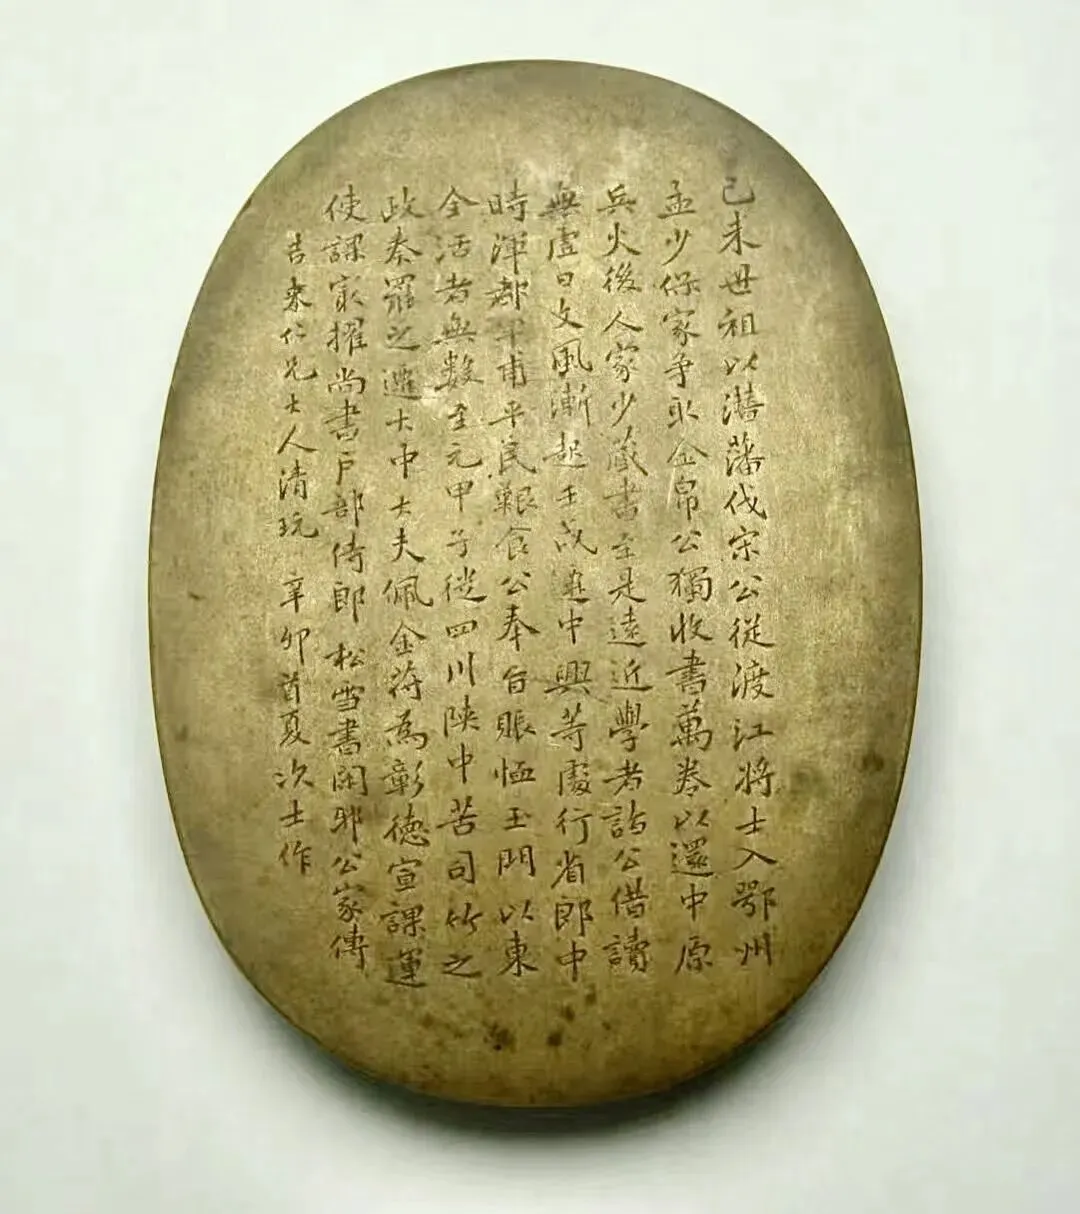 己未世祖以潛藩伐宋公從渡江將士入鄂州
孟少保家争取金帛公獨收書萬卷以還中原
兵火後人家少藏書至是遠近學者詣公借讀
無虚日文風漸起壬戌遷中興等處行省郎中
時渾都军甫平民艱食公奉旨賑恤玉門以東
全活者無數至元甲子從四川陝中苦司竹之
政奏罷之遷大中大夫佩金符為彰德宣課運
使課最擢尚書戶部侍郎 松雪書閑邪公家傳
吉来仁兄大人清玩 辛卯首夏 次士作